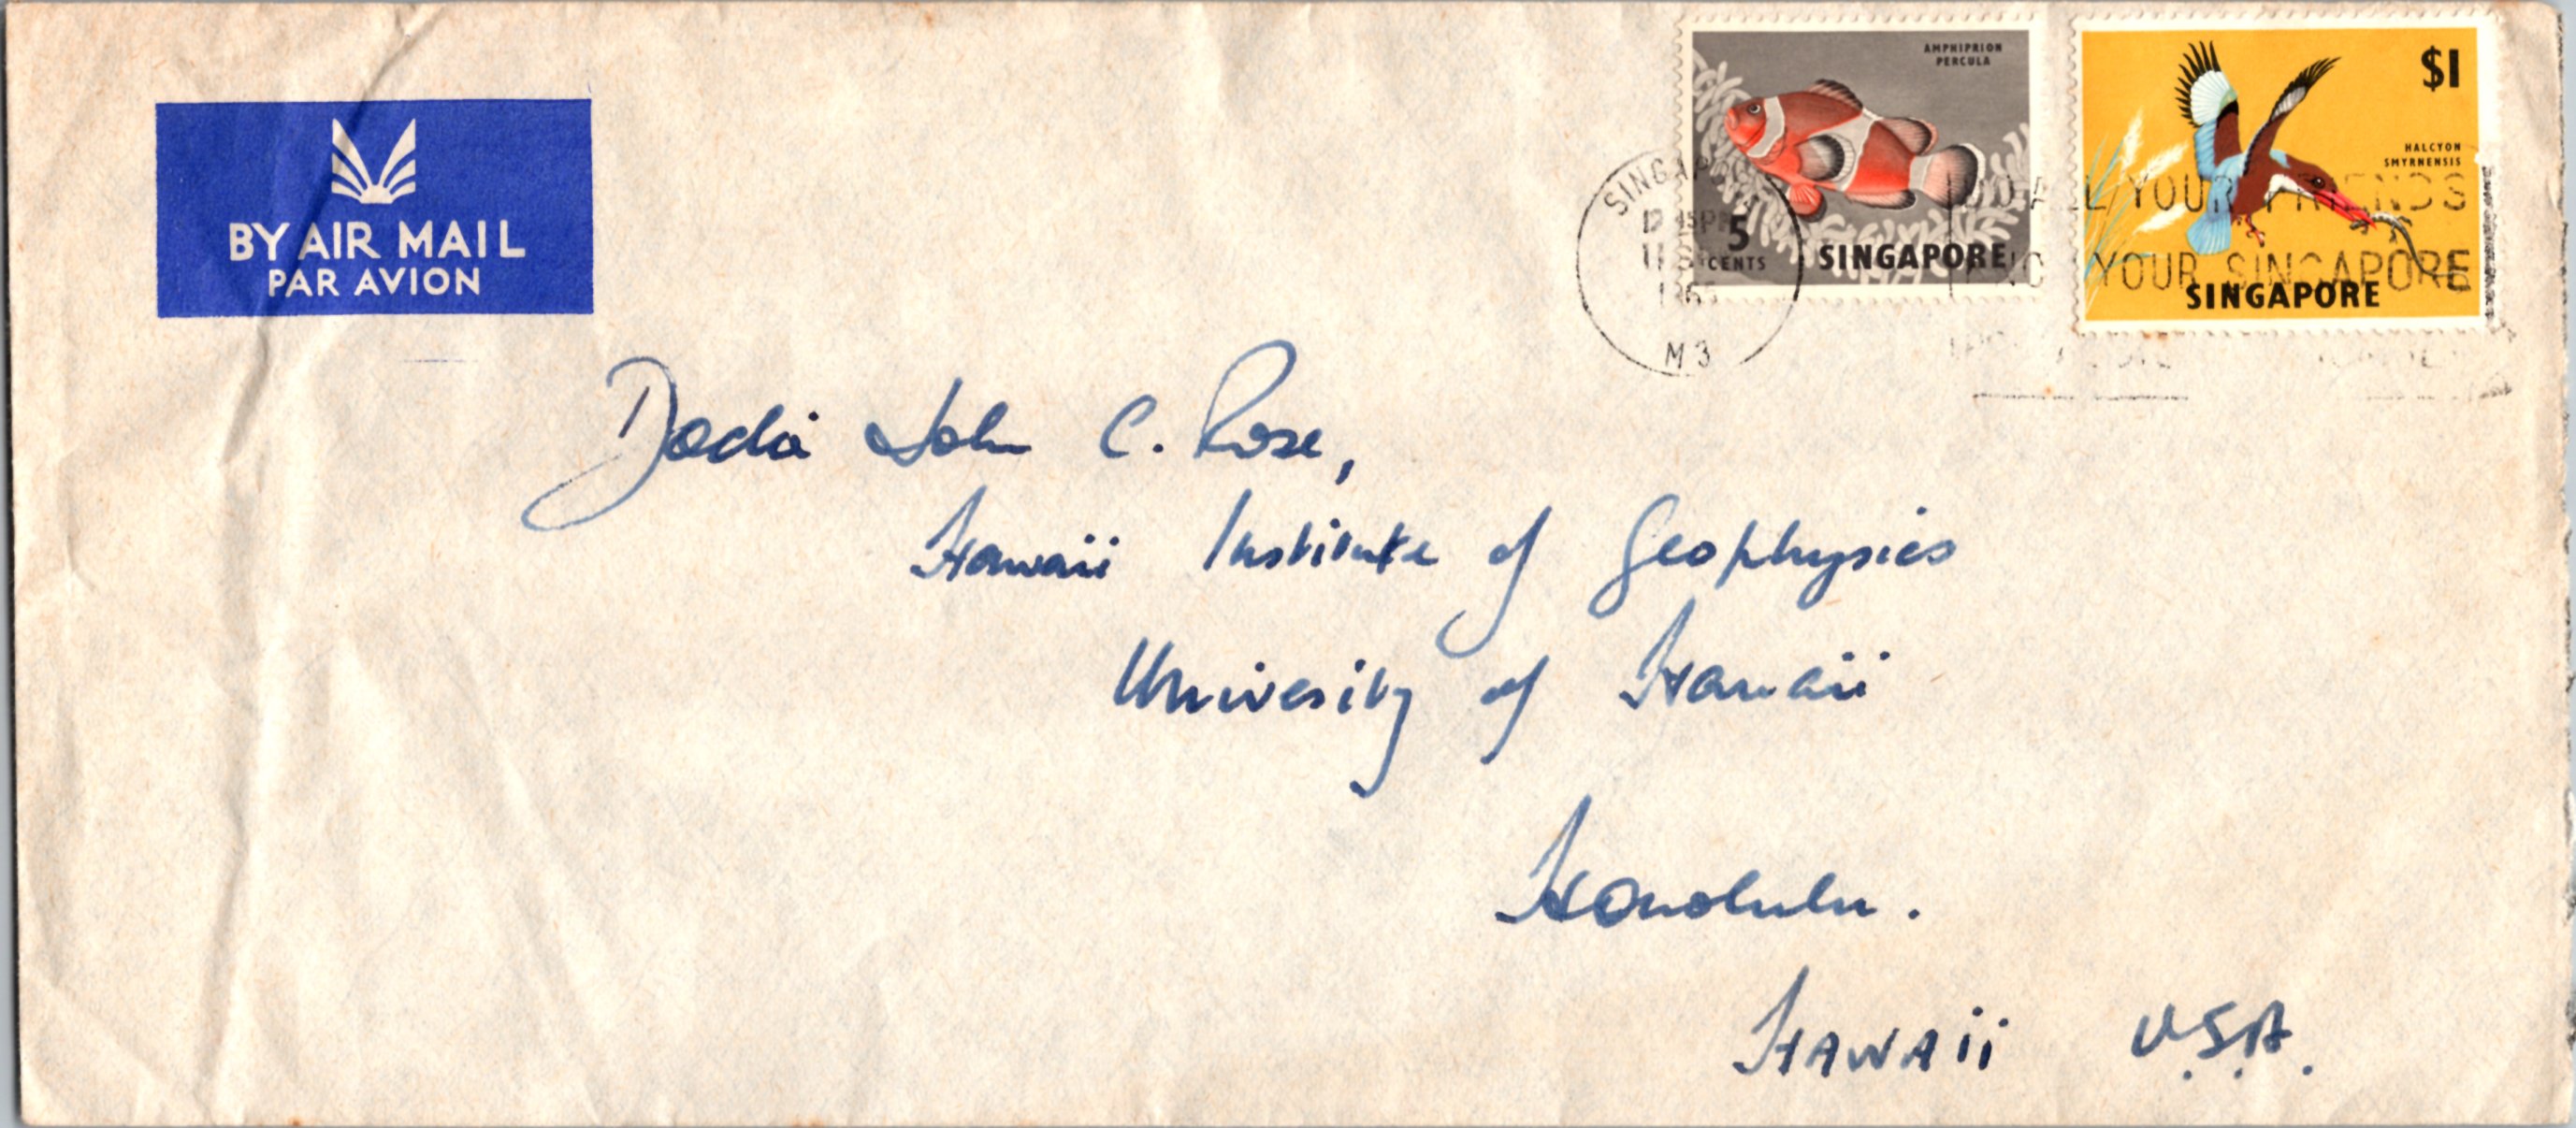 BY AIR MAIL
PAR AVION
AMPHIPRION
PERCULA
5
CENTS
SINGAPORE
$1
HALCYON
SMYRNENSIS
SINGAPORE
SINGAPORE
1965
M3
YOUR FRIENDS
YOUR SINGAPORE
John C. Rose,
Hawaii Institute of Geophysics
University of Hawaii
Honolulu.
HAWAii U.S.A.